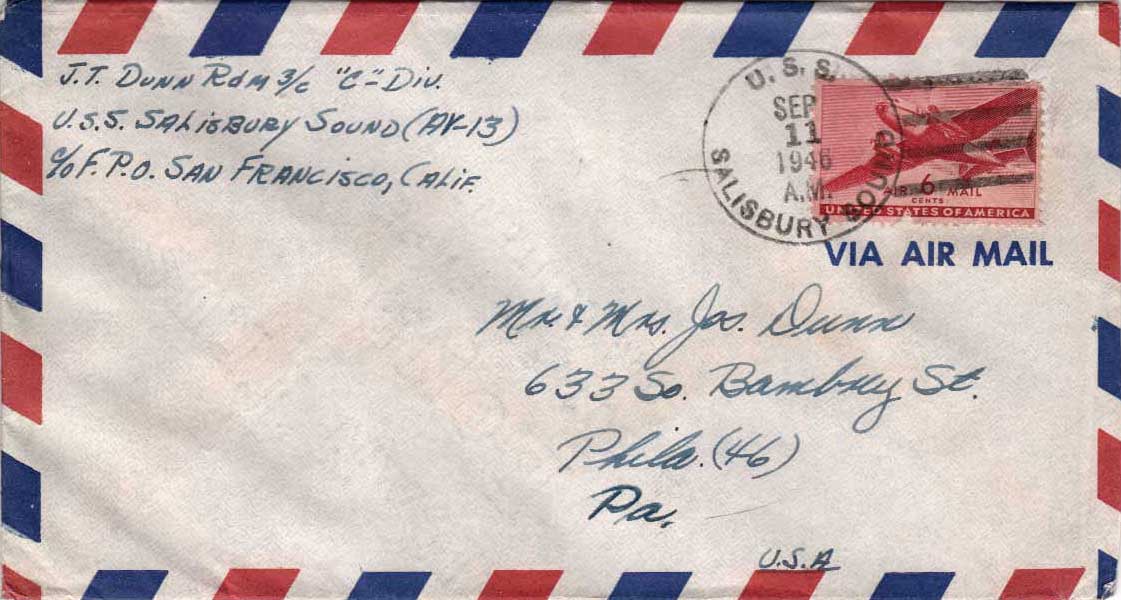 J.T. Dunn Rdm 3/c "C"-Div.
U.S.S. Salisbury Sound (AV-13)
c/o F.P.O. San Francisco, Calif.
U.S.S.
SEP
11
1946
A.M.
SALISBURY SOUND
AIR 6 MAIL
CENTS
UNITED STATES OF AMERICA
VIA AIR MAIL
Mr. & Mrs. Jos. Dunn
633 So. Bambrey St.
Phila. (46)
Pa.
U.S.A